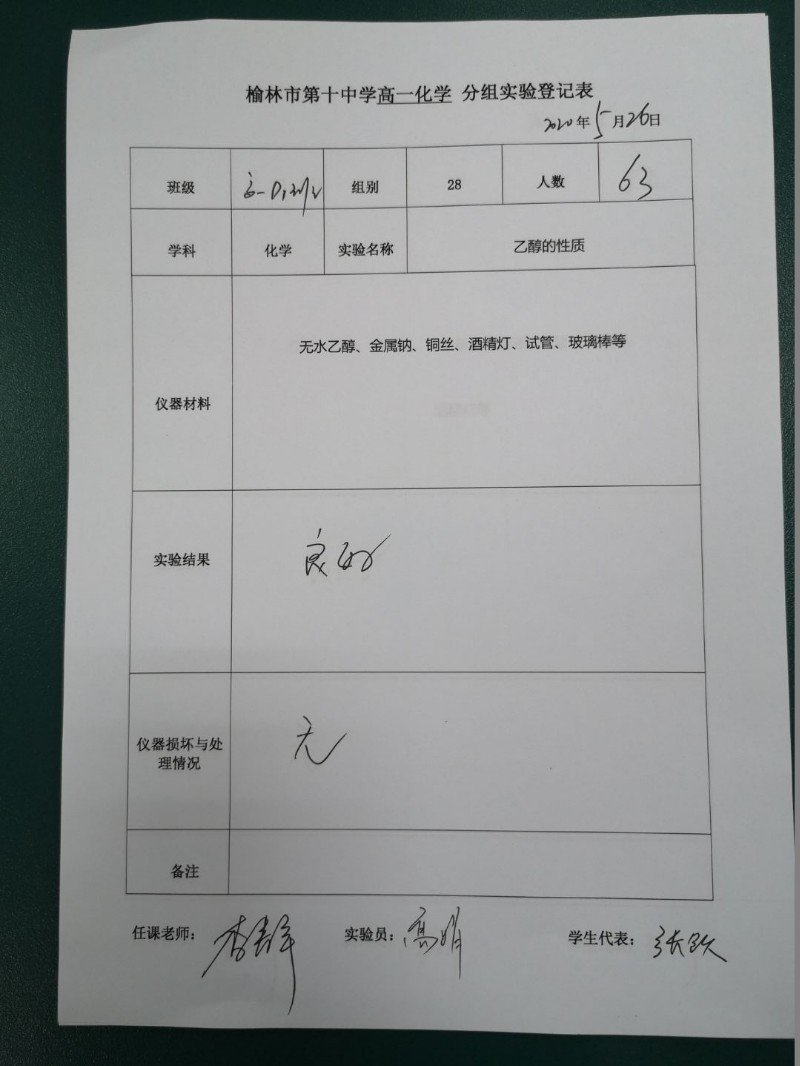 榆林市第十中学高一化学 分组实验登记表
2020年5月26日
班级 高一 组别 28 人数 63
学科 化学 实验名称 乙醇的性质
仪器材料 无水乙醇、金属钠、铜丝、酒精灯、试管、玻璃棒等
实验结果 良好
仪器损坏与处
理情况 无
备注
任课老师: 实验员:高娟 学生代表:张跃